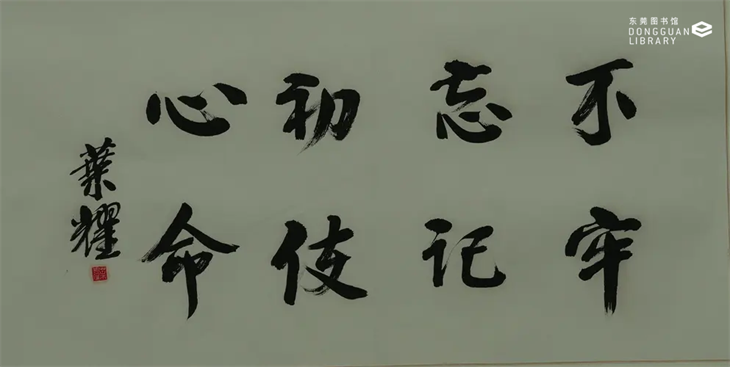 东莞图书馆
DONGGUAN
LIBRARY
不忘初心
牢记使命
葉耀